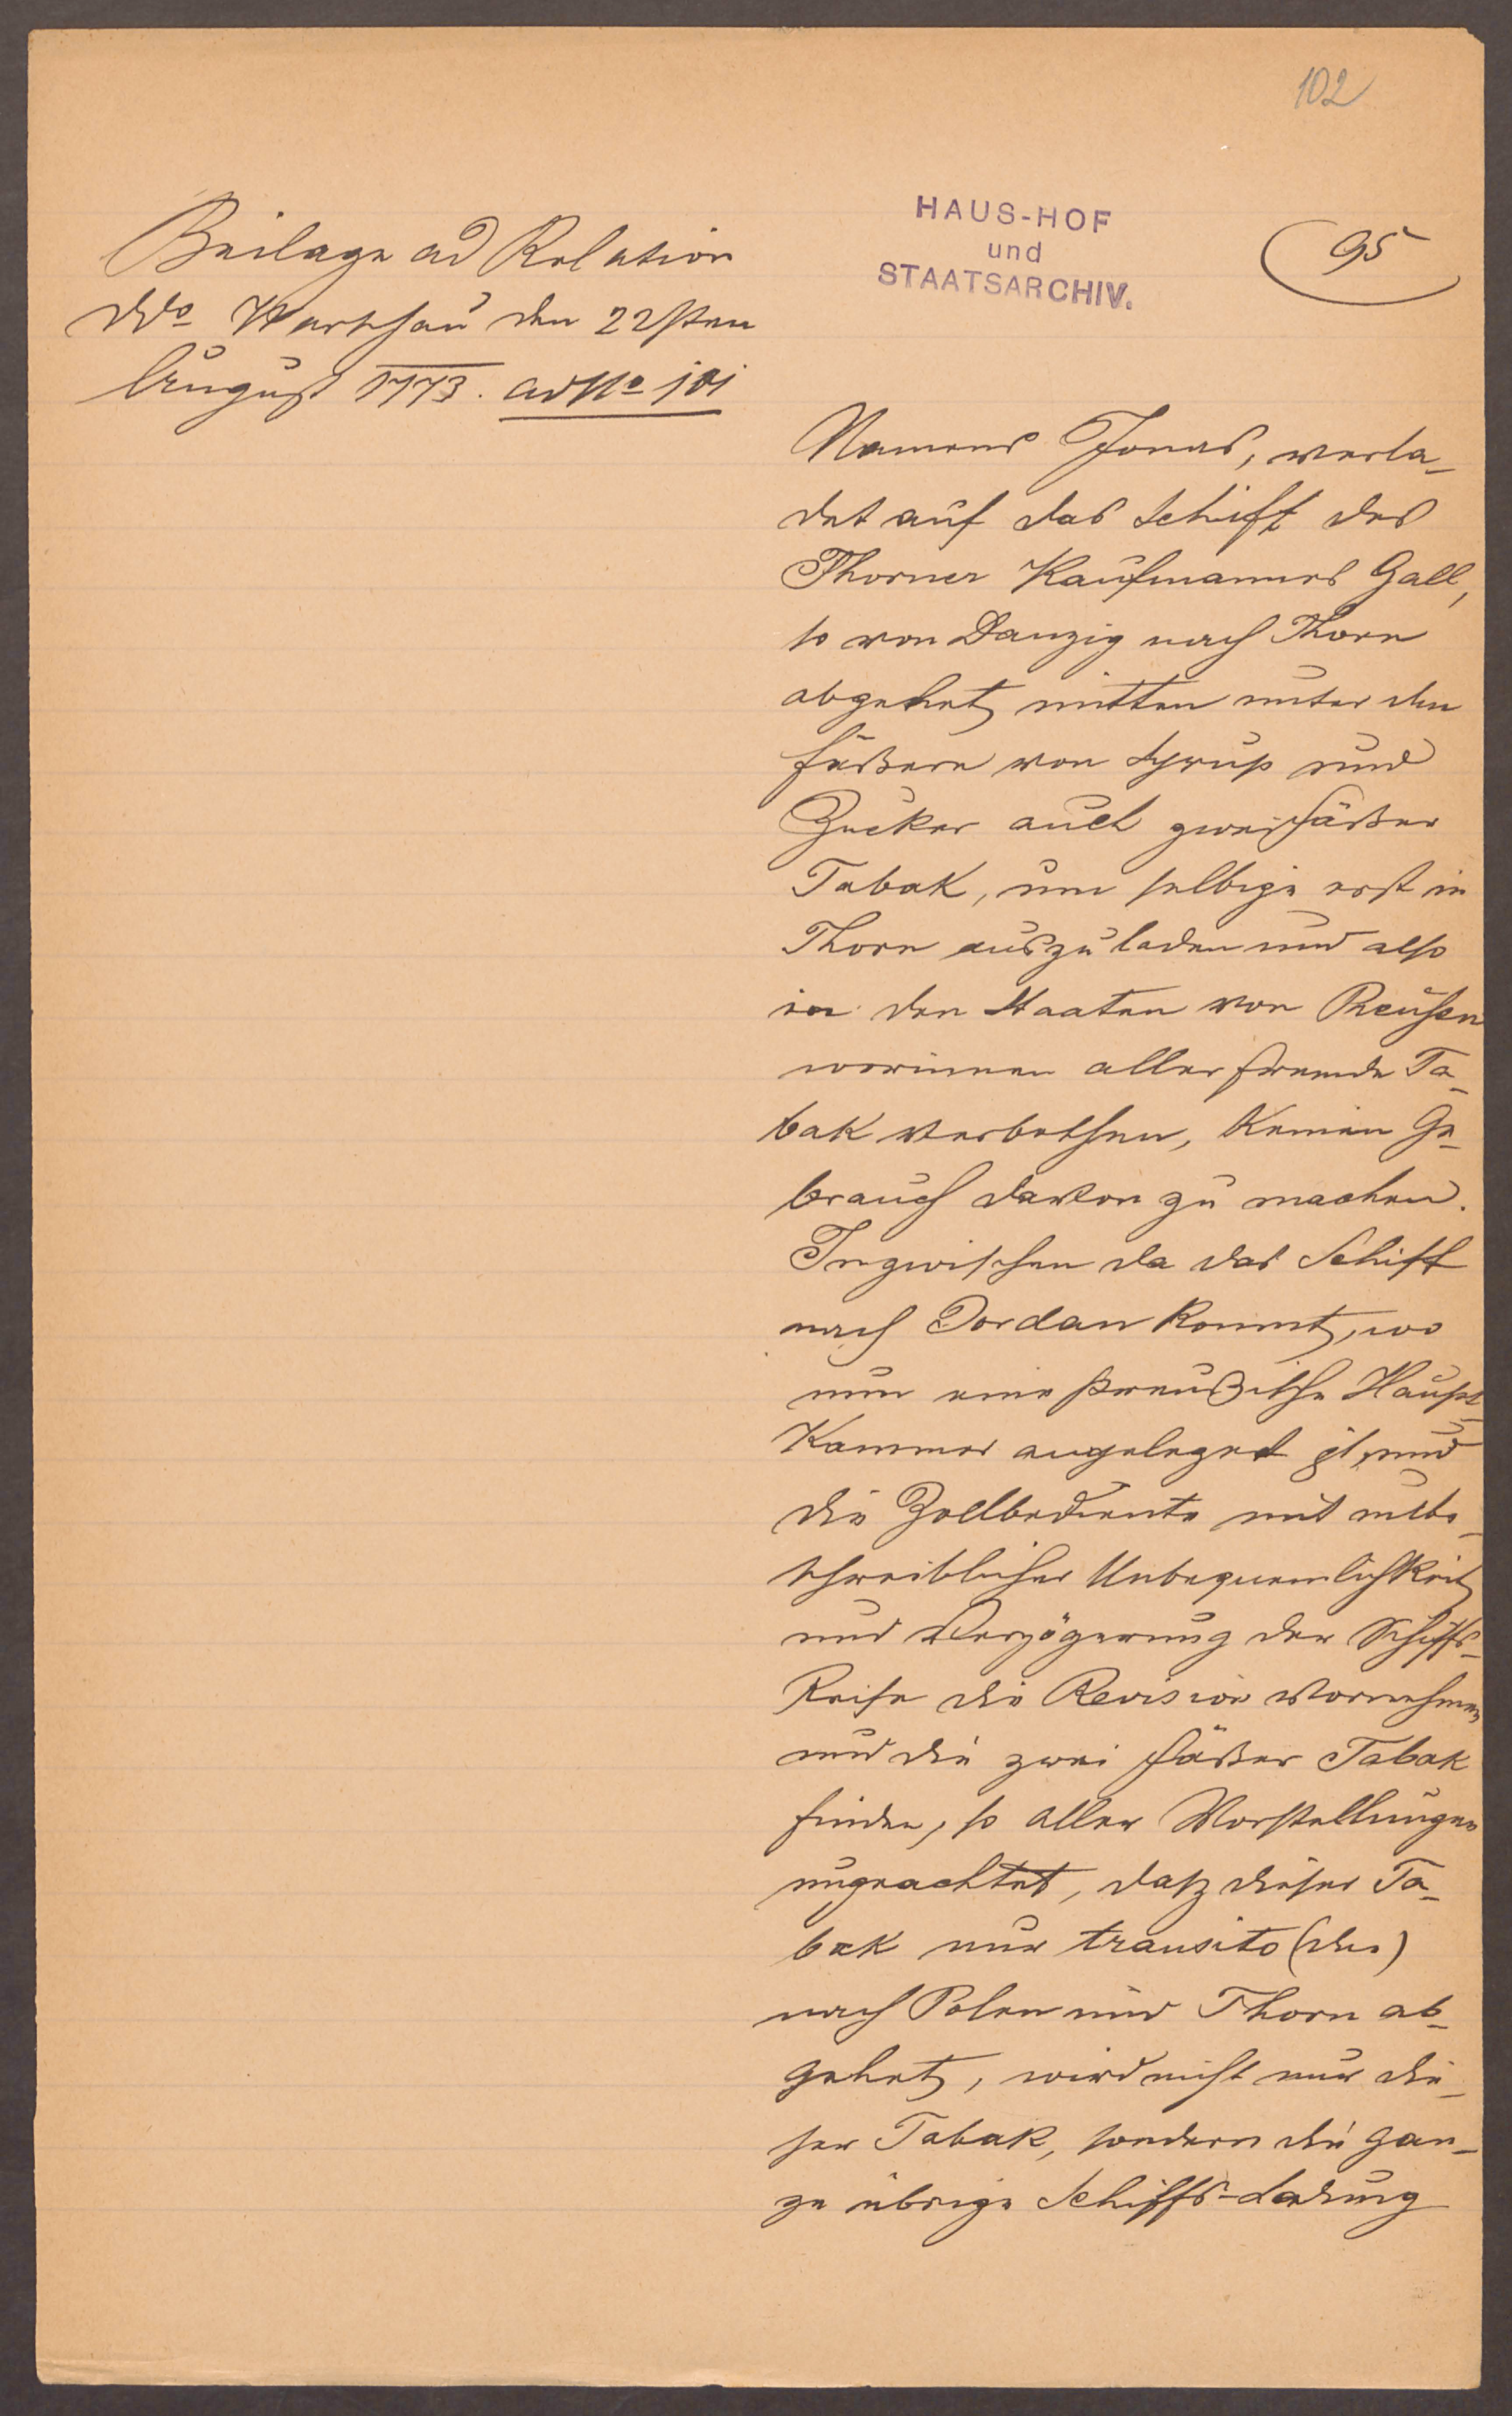 102
HAUS-HOF
und
STAATSARCHIV.
95
Beilage ad Relation
ddo Warschau den 22sten
August 1773. ad No 101
Namens Jonas, verla-
det auf das Schiff des
Thorner Kaufmannes Gall,
so von Danzig nach Thorn
abgehet, mitten unter den
Fäßern von Syrup und
Zucker auch zwei Fäßer
Tabak, um selbige erst in
Thorn auszuladen und also
in den Staaten von Preußen
worinnen aller fremde Ta-
bak verbothen, keinen Ge-
brauch davon zu machen.
Inzwischen da das Schiff
nach Dordan kommt, wo
nun eine Preußische Haupt
Kammer angeleget ist, und
die Zollbediente mit unbe-
schreiblicher Unbequemlichkeit
und Verzögerung der Schiffs-
Reise die Revision vornehmen
und die zwei Fäßer Tabak
finden, so aller Vorstellungen
ungeachtet, daß dieser Ta-
bak nur transito (des)
nach Polen und Thorn ab-
gehet, wird nicht nur die-
ser Tabak, sondern die gan-
ze übrige Schiffs-Ladung